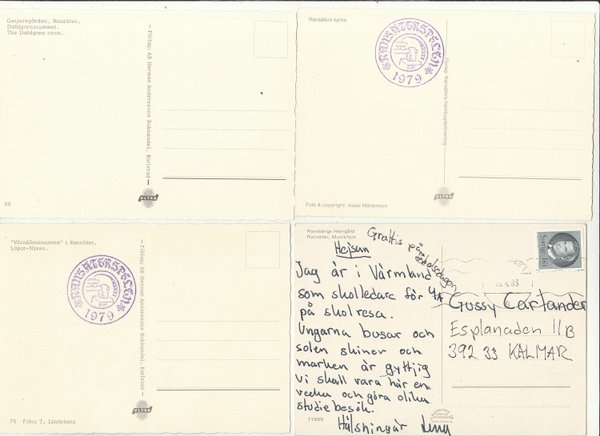 Geijersgården, Ransäter.
Dahlgrensrummet.
The Dahlgren room.
Förlag: AB Herman Anderssons Bokhandel, Karlstad
ULTRA
Ransäters kyrka
RANSÄTERSPELEN
1979
Förlag: Ransäters Hembygdsförening
Foto & copyright: Assar Mårtensson
ULTRA
"Värmlänningarna" i Ransäter.
Löpar-Nisse.
RANSÄTERSPELEN
1979
Förlag: AB Herman Anderssons Bokhandel, Karlstad
74 Foto: T. Lindeberg
ULTRA
Ransbergs Herrgård
Ransäter, Munkfors
Grattis på
födelsedagen
Hejsan
Jag är i Värmland
som skolledare för 4A
på skolresa.
Ungarna busar och
solen skiner och
marken är gyttjig
vi skall vara här en
vecka och göra olika
studiebesök.
Hälsningar Lena
11503
SVERIGE
Gussy Cartander
Esplanaden 11B
392 33 KALMAR